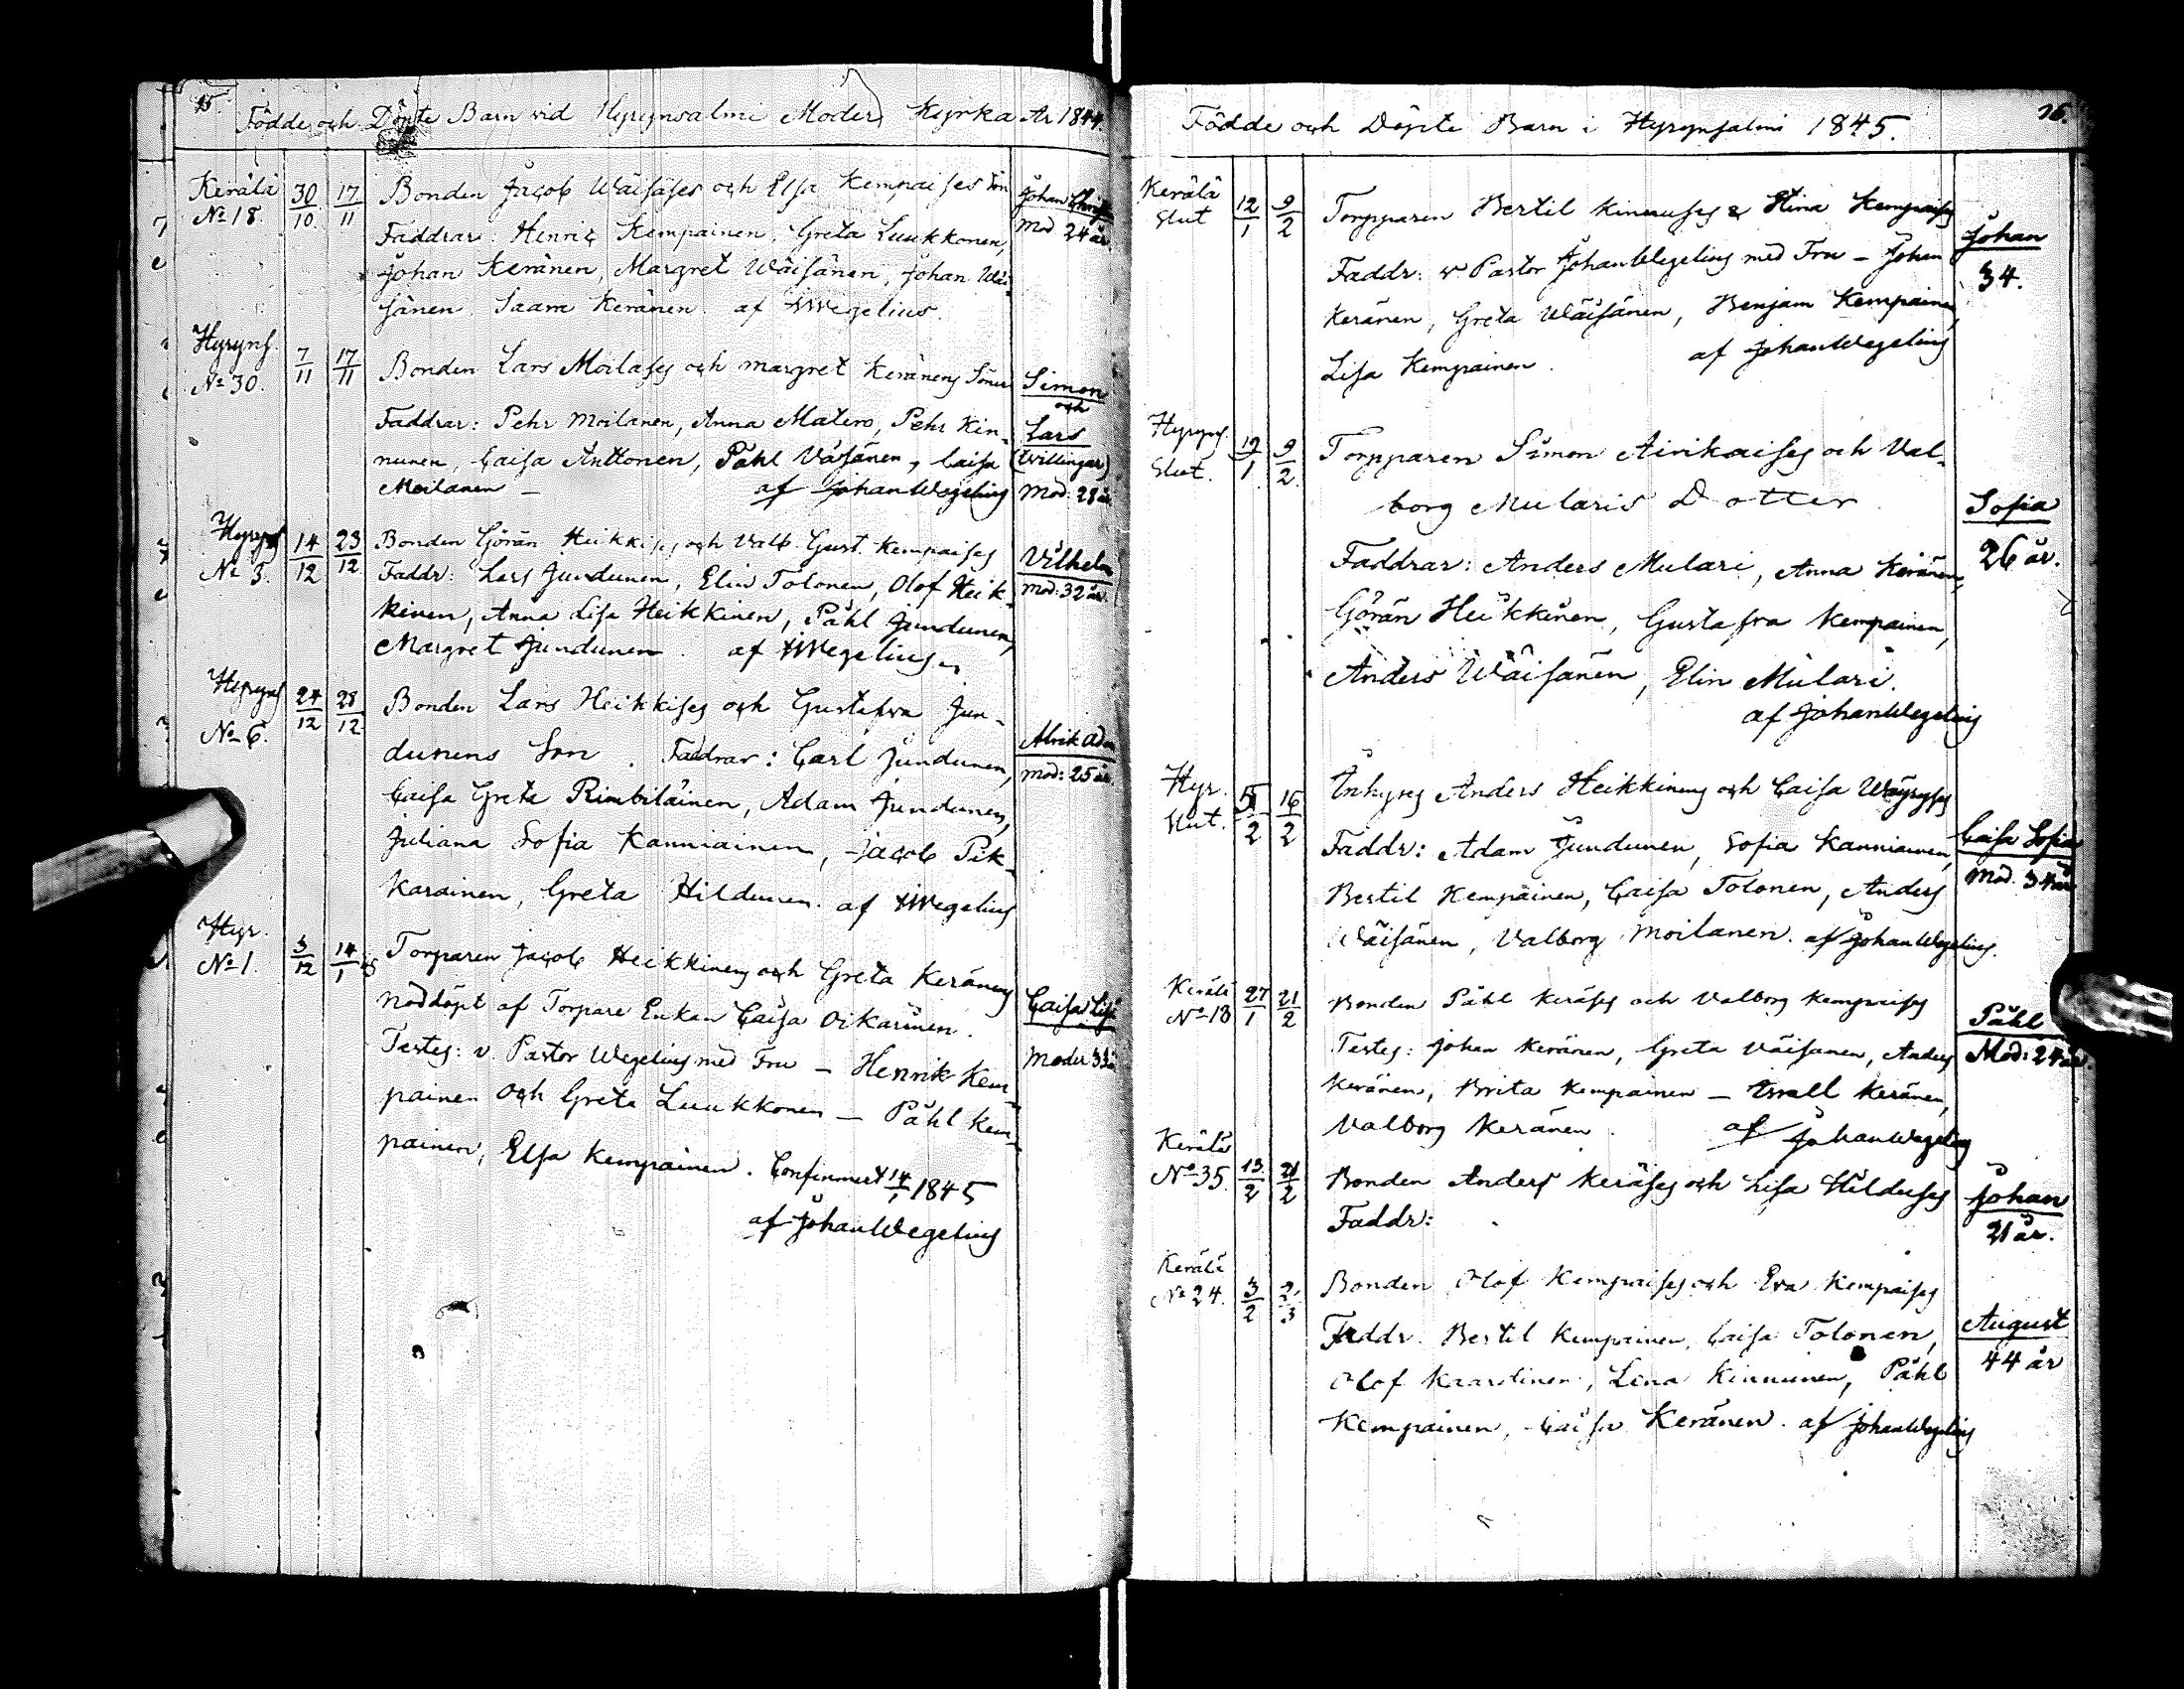 15.
Födde och Döpte Barn vid Hyrynsalmi Moder Kyrka År 1844.
Kerälä
No 18.
30/10
17/11
Bonden Jacob Wäisäses och Elsa Kempaises Son
Faddrar: Henric Kempainen, Greta Luukkonen,
Johan Keränen, Margret Wäisänen, Johan Wäi-
sänen, Saara Keränen. af JWegelius.
Johan
Mod 24 år.
Hyryns.
No 30.
7/11
17/11
Bonden Lars Moilases och Margret Keränens Söner
Faddrar: Pehr Moilanen, Anna Matero, Pehr Kin-
nunen, Caisa Anttonen, Påhl Väisänen, Caisa
Moilanen — af Johan Wegelius
Simon
och
Lars
(tvillingar)
Mod: 28 år.
Hyryns
No 3.
14/12
23/12
Bonden Göran Heikkises och Valb. Gust. Kempaises
Faddr: Lars Jundunen, Elin Tolonen, Olof Heik-
kinen, Anna Lisa Heikkinen, Påhl Jundunen,
Margret Jundunen. af JWegelius
Vilhelm
mod: 32 år.
Hyryns
No 6.
24/12
28/12
Bonden Lars Heikkises och Gustafva Jun-
dunens Son. Faddrar: Carl Jundunen,
Caisa Greta Rimbiläinen, Adam Jundunen,
Juliana Sofia Kanniainen, Jacob Pik-
karainen, Greta Hildunen. af JWegelius
Alrik Adam
mod: 25 år.
Hyr.
No 1.
3/12
14/1 45
Torparen Jacob Heikkinens och Greta Keränens
Nöddöpt af Torpare Enkan Caisa Oikarinen.
Testes: v. Pastor Wegelius med Fru — Henrik Kem-
painen och Greta Luukkonen — Påhl Kem-
painen, Elsa Kempainen. Confirmert 14/1 1845
af Johan Wegelius
Caisa Lisa
Moder
16.
Födde och Döpte Barn i Hyrynsalmi 1845.
Kerälä
Slut
12/1
9/2
Torpparen Bertil Kinnuses & Stina Kempaises
Faddr: v. Pastor Johan Wegelius med Fru — Johan
Keränen, Greta Wäisänen, Benjam Kempainen,
Lisa Kempainen. af Johan Wegelius
Johan
34.
Hyryns.
Slut.
19/1
9/2
Torpparen Simon Airikaises och Val-
borg Mularis Dotter.
Faddrar: Anders Mulari, Anna Keränen,
Göran Heikkinen, Gustafva Kempainen,
Anders Wäisänen, Elin Mulari.
af Johan Wegelius
Sofia
26 år.
Hyr.
Slut.
5/2
16/2
Inhyses Anders Heikkinens och Caisa Wäyryses
Faddr: Adam Jundunen, Sofia Kanniainen,
Bertil Kempainen, Caisa Tolonen, Anders
Wäisänen, Valborg Moilanen. af Johan Wegelius.
Caisa Sofia
Mod. 34 år
Kerälä
No 13
27/1
21/2
Bonden Påhl Keräses och Valborg Kempaises
Testes: Johan Keränen, Greta Väisanen, Anders
Keränen, Brita Kempainen — Keränen,
Valborg Keränen. af Johan Wegelius
Påhl
Mod: 24 år.
Kerälä
No 35.
13/2
21/2
Bonden Anders Keräses och Lisa Hilduses
Faddr:
Johan
21 år.
Kerälä
No 24.
3/2
2/3
Bonden Olof Kempaises och Eva Kempaises
Faddr. Bertil Kempainen, Caisa Tolonen,
Olof Kaardinen, Lena Kinnunen, Påhl
Kempainen, Caisa Keränen. af Johan Wegelius
August
44 år